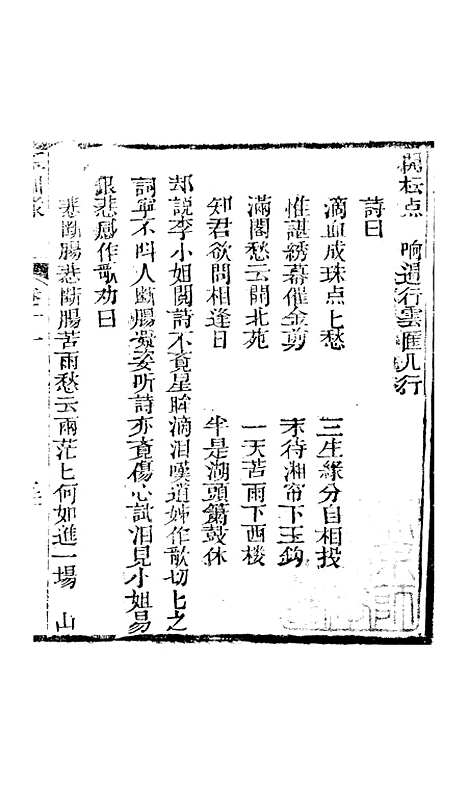 点 响遏行雲匯几行
詩曰
滴血成珠点上愁 三生緣分自相投
惟諶綉幕催金剪 未待湘帘下玉鈎
滿閣愁云開北苑 一天苦雨下西楼
知君欲問相逢日 半是湖頭簫鼓休
却説李小姐閲詩不竟星眸滴泪嘆道姊作歌切匕之
詞寧不呌人斷腸癡妾听詩亦竟傷心試泪見小姐易
銀悲感作歌劝曰
悲斷腸悲斷腸苦雨愁云両茫匕何如進一場 山